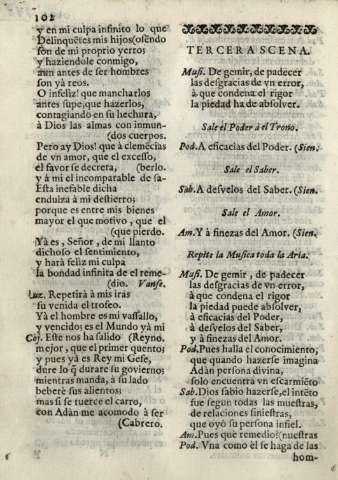 102
y en mi culpa infinito lo que
Delinquẽtes mis hijos (oſẽndo
ſon de mi proprio yerro;
y haziendole conmigo,
aun antes de ſer hombres
ſon yà reos.
O infeliz! que mancharlos
antes ſupe, que hazerlos,
contagiando en ſu hechura,
à Dios las almas con inmun-
(dos cuerpos.
Pero ay Dios! que à clemẽcias
de vn amor, que el exceſſo,
el favor ſe decreta, (berlo.
y à mi el incomparable de ſa-
Eſta inefable dicha
endulza à mi deſtierro;
porque es entre mis bienes
mayor el que motivo, que el
(que pierdo.
Yà es, Señor, de mi llanto
dichoſo el ſentimiento,
y harà feliz mi culpa
la bondad infinita de el reme-
(dio. Vanſe.
Luz. Repetirà à mis iras
ſu venida el trofeo.
Yà el hombre es mi vaſſallo,
y vencido; es el Mundo yà mi
Coj. Eſte nos ha ſalido (Reyno.
mejor, que el primer quento;
y pues yà es Rey mi Gefe,
dure lo q̃ durare ſu govierno;
mientras manda, à ſu lado
beberè ſus alientos;
mas ſi ſe tuerce el carro,
con Adàn me acomodo à ſer
(Cabrero.
TERCERA SCENA.
Muſi. De gemir, de padecer
las deſgracias de vn error,
à que condena el rigor
la piedad ha de abſolver.
Sale el Poder à el Trono.
Pod. A eficacias del Poder. (Sien.
Sale el Saber.
Sab. A deſvelos del Saber. (Sien.
Sale el Amor.
Am. Y à finezas del Amor. (Sien.
Repite la Muſica toda la Aria.
Muſi. De gemir, de padecer
las deſgracias de vn error,
à que condena el rigor
la piedad puede abſolver,
à eficacias del Poder,
à deſvelos del Saber,
y à finezas del Amor.
Pod. Pues halla el conocimiento,
que quando hazerſe imagina
Adàn perſona divina,
ſolo encuentra vn eſcarmiẽto
Sab. Dios ſabio hazerſe, el intẽto
fue ſegun todas las mueſtras,
de relaciones ſinieſtras,
que oyò ſu perſona infiel.
Am. Pues que remedio? (nueſtras
Pod. Vna como èl ſe haga de las
hom-